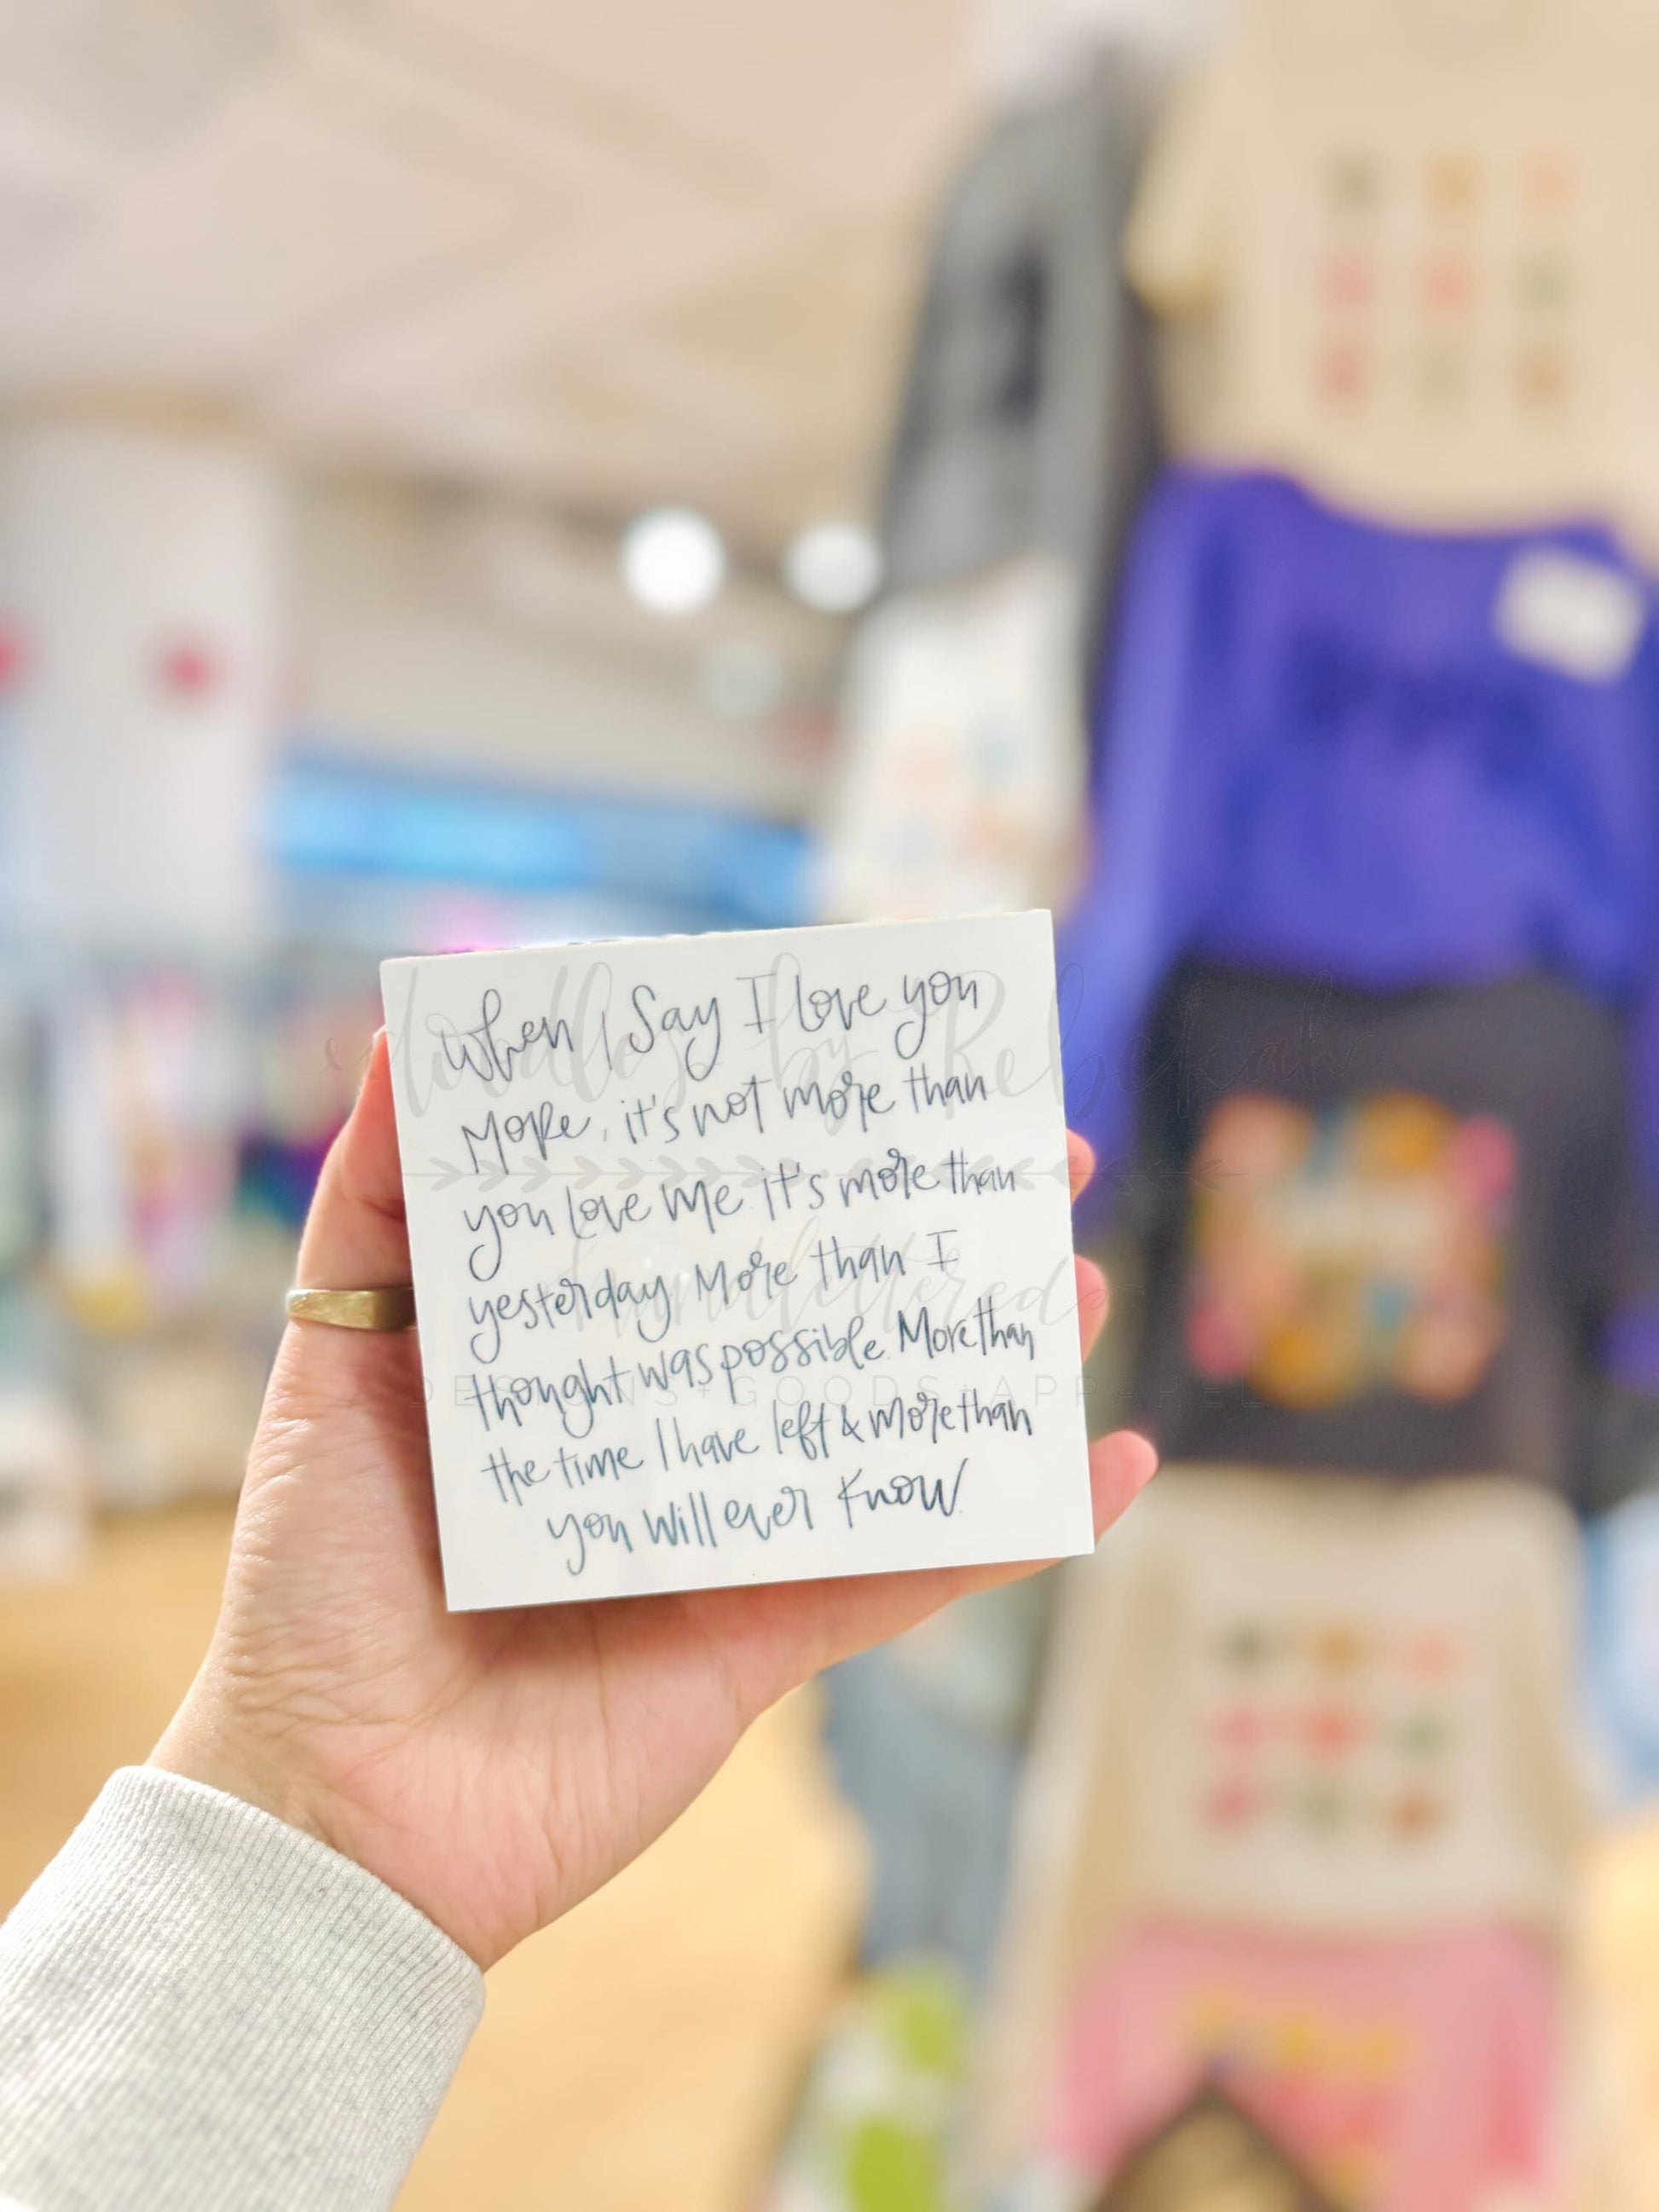 when I say I love you
more, it's not more than
you love me. it's more than
yesterday. More than I
thought was possible. More than
the time I have left & more than
you will ever know.
doodles by Rebekah
handlettered
DESIGNS + GOODS + APPAREL